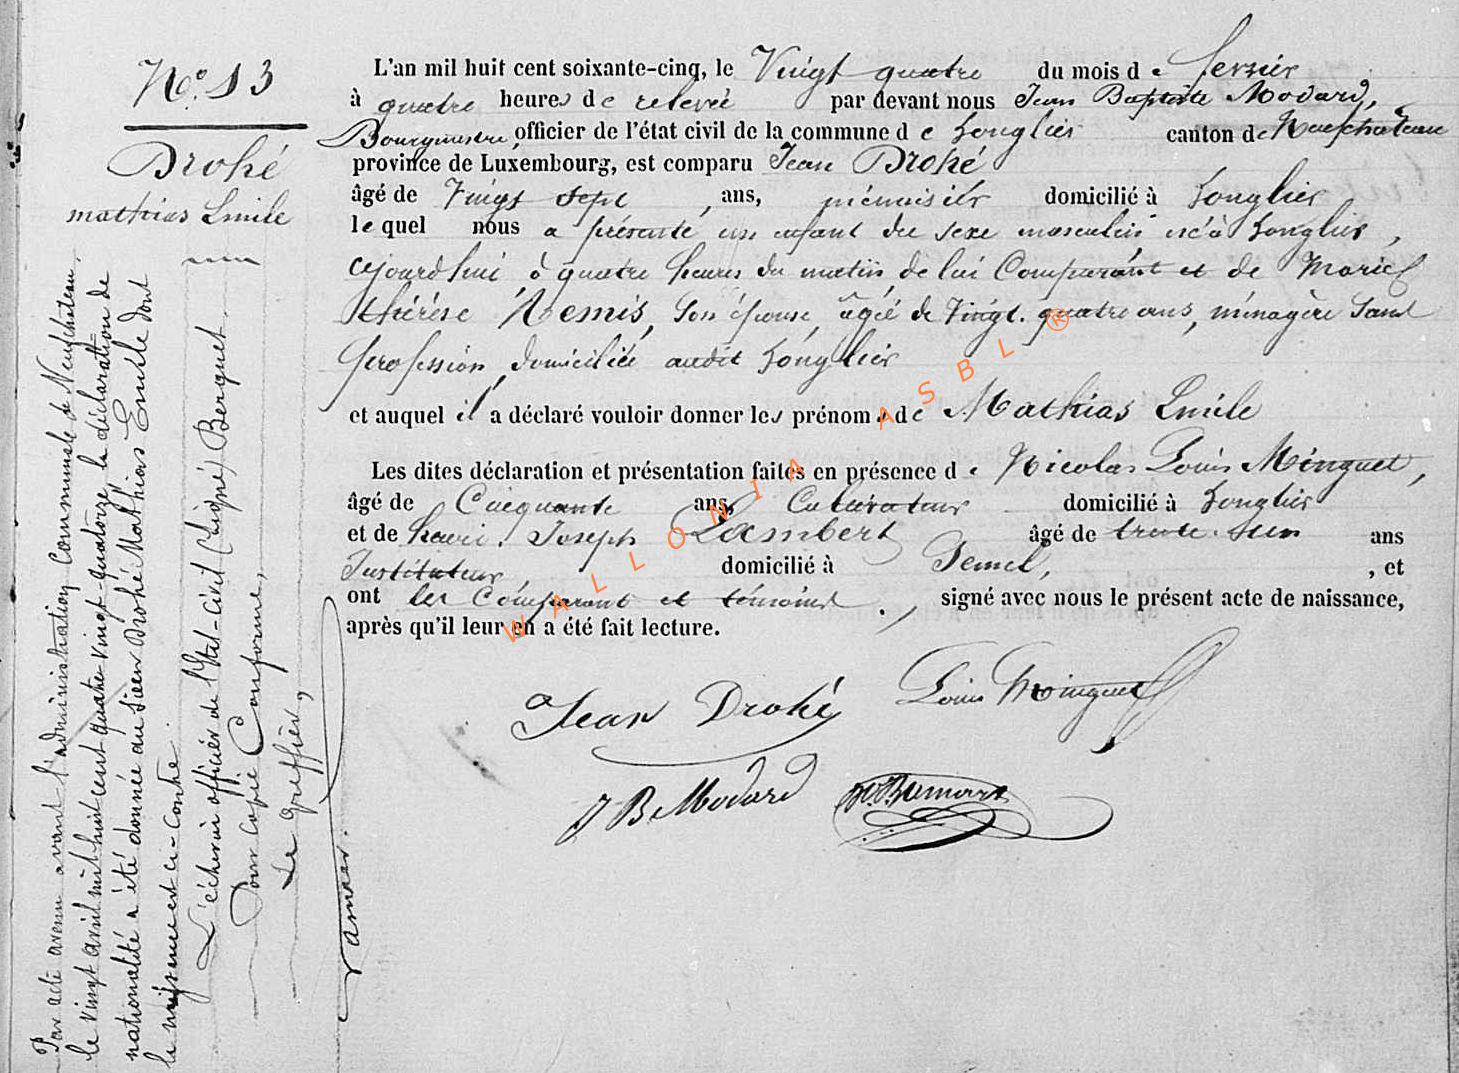 N° 13
Drohé
mathias Emile
L'an mil huit cent soixante-cinq, le Vingt quatre du mois de fevrier
à quatre heures de relevée par devant nous Jean Baptiste Modard,
Bourgmestre, officier de l'état civil de la commune de Longlier canton de Neufchateau
province de Luxembourg, est comparu Jean Drohé
âgé de Vingt sept ans, menuisier domicilié à Longlier
lequel nous a présenté un enfant du sexe masculin, né à Longlier,
cejourdhui, à quatre heures du matin, de lui Comparant et de Marie
thérèse Remis, son épouse, âgée de Vingt. quatre ans, ménagère sans
profession, domiciliée audit Longlier
et auquel il a déclaré vouloir donner les prénoms de Mathias Emile
Les dites déclaration et présentation faites en présence de Nicolas Louis Minguet,
âgé de Cinquante ans, Cultivateur domicilié à Longlier
et de Joseph Lambert âgé de trente. un ans
Instituteur, domicilié à , et
ont les Comparant et témoins , signé avec nous le présent acte de naissance,
après qu'il leur en a été fait lecture.
Jean Drohé Louis Minguet
J B Modard
Par acte avenu devant l'administration Communale de Neufchateau,
le vingt avril mil huit cent quatre-vingt-quatorze, la déclaration de
nationalité a été donnée au sieur Drohé Mathias Emile dont
la naissance est ci-contre.
L'échevin officier de l'Etat-Civil (signé) Berquet
Pour copie Conforme,
Le Greffier,
WALLONIA ASBL ®